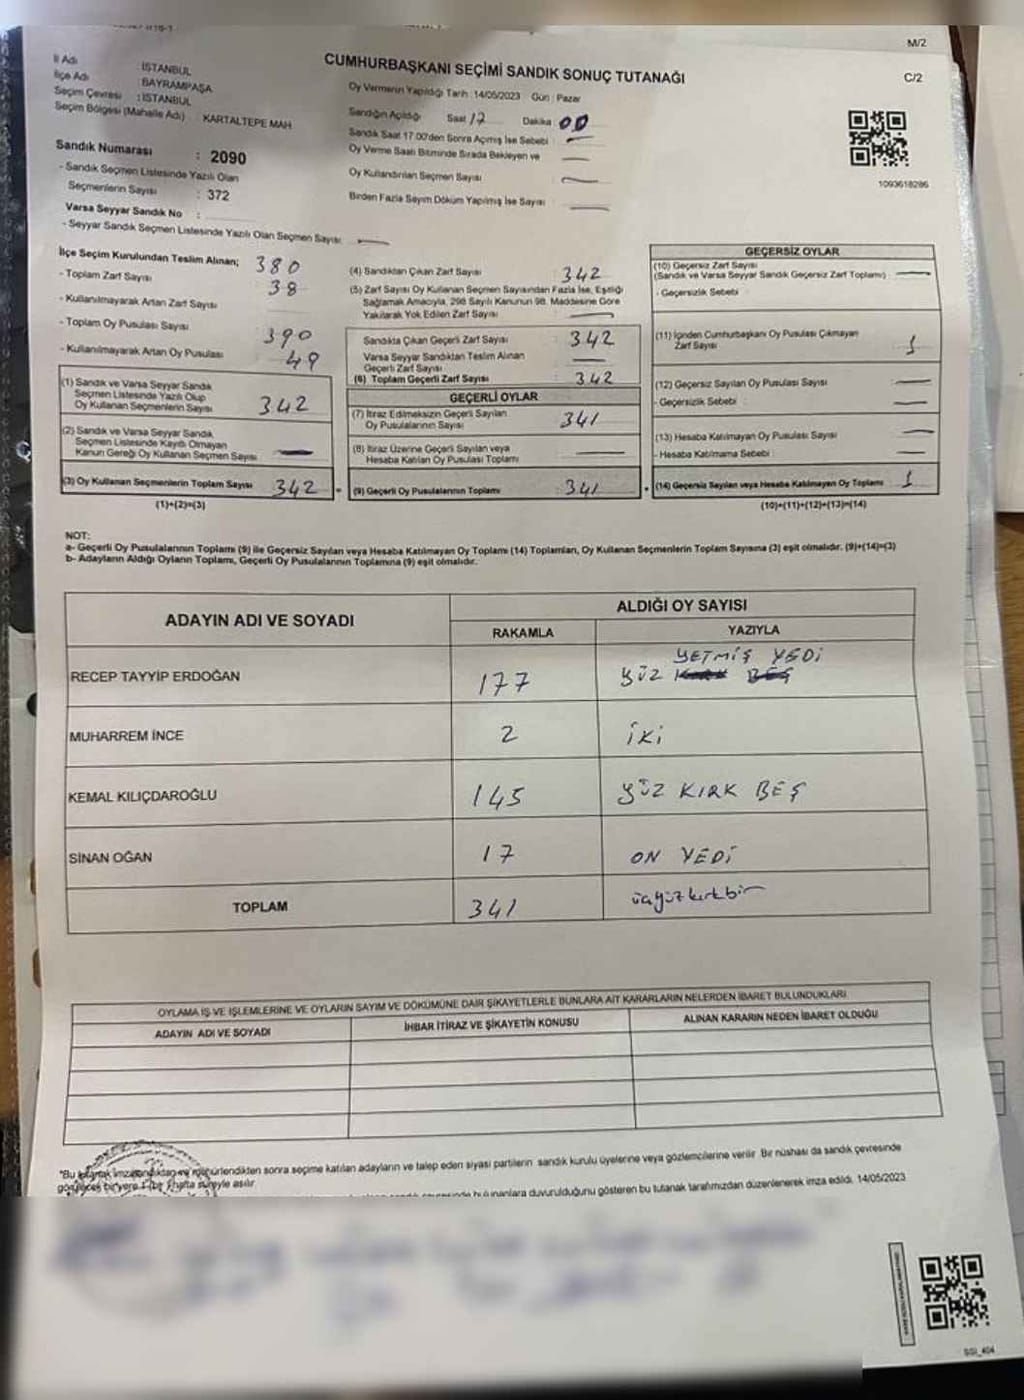 M/2
C/2
CUMHURBAŞKANI SEÇİMİ SANDIK SONUÇ TUTANAĞI
İl Adı : İSTANBUL
İlçe Adı : BAYRAMPAŞA
Seçim Çevresi : İSTANBUL
Seçim Bölgesi (Mahalle Adı) : KARTALTEPE MAH
Sandık Numarası : 2090
- Sandık Seçmen Listesinde Yazılı Olan
Seçmenlerin Sayısı : 372
Varsa Seyyar Sandık No :
- Seyyar Sandık Seçmen Listesinde Yazılı Olan Seçmen Sayısı: —
Oy Vermenin Yapıldığı Tarih :14/05/2023 Gün : Pazar
Sandığın Açıldığı Saat 17 Dakika 00
Sandık Saat 17:00'den Sonra Açılmış İse Sebebi : —
Oy Verme Saati Bitiminde Sırada Bekleyen ve —
Oy Kullandırılan Seçmen Sayısı : —
Birden Fazla Sayım Döküm Yapılmış İse Sayısı : —
1093618286
İlçe Seçim Kurulundan Teslim Alınan; 380
- Toplam Zarf Sayısı 38
- Kullanılmayarak Artan Zarf Sayısı
- Toplam Oy Pusulası Sayısı 390
- Kullanılmayarak Artan Oy Pusulası 49
(1) Sandık ve Varsa Seyyar Sandık
Seçmen Listesinde Yazılı Olup
Oy Kullanan Seçmenlerin Sayısı 342
(2) Sandık ve Varsa Seyyar Sandık
Seçmen Listesinde Kayıtlı Olmayan
Kanun Gereği Oy Kullanan Seçmen Sayısı —
(3) Oy Kullanan Seçmenlerin Toplam Sayısı 342
(1)+(2)=(3)
(4) Sandıktan Çıkan Zarf Sayısı 342
(5) Zarf Sayısı Oy Kullanan Seçmen Sayısından Fazla İse, Eşitliği
Sağlamak Amacıyla, 298 Sayılı Kanunun 98. Maddesine Göre
Yakılarak Yok Edilen Zarf Sayısı —
Sandıkta Çıkan Geçerli Zarf Sayısı : 342
Varsa Seyyar Sandıktan Teslim Alınan
Geçerli Zarf Sayısı —
(6) Toplam Geçerli Zarf Sayısı : 342
GEÇERLİ OYLAR
(7) İtiraz Edilmeksizin Geçerli Sayılan
Oy Pusulalarının Sayısı : 341
(8) İtiraz Üzerine Geçerli Sayılan veya
Hesaba Katılan Oy Pusulası Toplamı : —
(9) Geçerli Oy Pusulalarının Toplamı : 341
GEÇERSİZ OYLAR
(10) Geçersiz Zarf Sayısı
(Sandık ve Varsa Seyyar Sandık Geçersiz Zarf Toplamı) : —
- Geçersizlik Sebebi :
(11) İçinden Cumhurbaşkanı Oy Pusulası Çıkmayan
Zarf Sayısı : 1
(12) Geçersiz Sayılan Oy Pusulası Sayısı : —
- Geçersizlik Sebebi : —
(13) Hesaba Katılmayan Oy Pusulası Sayısı : —
- Hesaba Katılmama Sebebi : —
(14) Geçersiz Sayılan veya Hesaba Katılmayan Oy Toplamı : 1
(10)+(11)+(12)+(13)=(14)
NOT:
a- Geçerli Oy Pusulalarının Toplamı (9) ile Geçersiz Sayılan veya Hesaba Katılmayan Oy Toplamı (14) Toplamları, Oy Kullanan Seçmenlerin Toplam Sayısına (3) eşit olmalıdır. (9)+(14)=(3)
b- Adayların Aldığı Oyların Toplamı, Geçerli Oy Pusulalarının Toplamına (9) eşit olmalıdır.
ADAYIN ADI VE SOYADI
ALDIĞI OY SAYISI
RAKAMLA YAZIYLA
YETMİŞ YEDİ
RECEP TAYYİP ERDOĞAN 177 YÜZ KIRK BEŞ
MUHARREM İNCE 2 İKİ
KEMAL KILIÇDAROĞLU 145 YÜZ KIRK BEŞ
SİNAN OĞAN 17 ON YEDİ
TOPLAM 341 üçyüzkırkbir
OYLAMA İŞ VE İŞLEMLERİNE VE OYLARIN SAYIM VE DÖKÜMÜNE DAİR ŞİKAYETLERLE BUNLARA AİT KARARLARIN NELERDEN İBARET BULUNDUKLARI
ADAYIN ADI VE SOYADI İHBAR İTİRAZ VE ŞİKAYETİN KONUSU ALINAN KARARIN NEDEN İBARET OLDUĞU
"Bu tutanak imzalandıktan ve mühürlendikten sonra seçime katılan adayların ve talep eden siyasi partilerin sandık kurulu üyelerine veya gözlemcilerine verilir. Bir nüshası da sandık çevresinde
görülecek bir yere 1 (bir) hafta süreyle asılır.
bulunanlara duyurulduğunu gösteren bu tutanak tarafımızdan düzenlenerek imza edildi. 14/05/2023